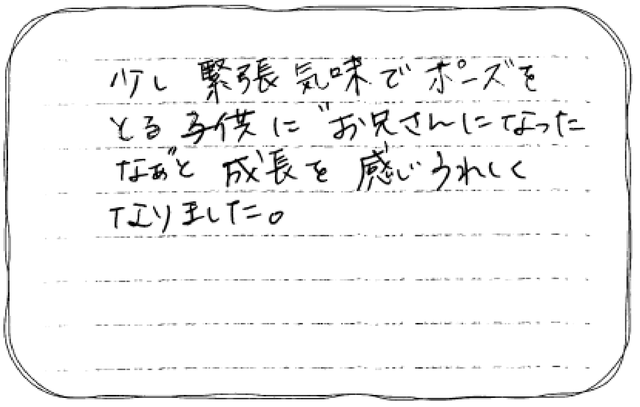 少し緊張気味でポーズを
とる子供に"お兄さんになった
なぁ"と成長を感じうれしく
なりました。